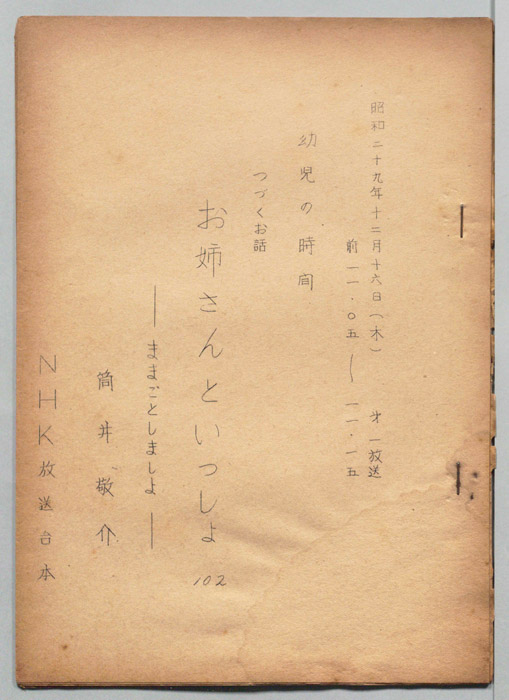 昭和二十九年十二月十六日(木) 才一放送
前一一・〇五〜一一・一五
幼児の時间
つづくお話
お姉さんといっしょ 102
―ままごとしましよ―
筒井敬介
NHK放送台本